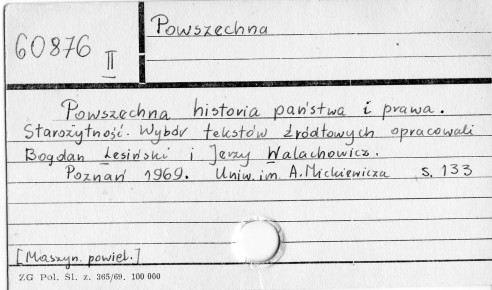 60876 II
Powszechna
Powszechna historia państwa i prawa.
Starożytność. Wybór tekstów źródłowych opracowali
Bogdan Lesiński i Jerzy Walachowicz.
Poznań 1969. Uniw. im. A. Mickiewicza s. 133
[Maszyn. powiel.]
ZG Pol. Sl. z. 365/69. 100 000